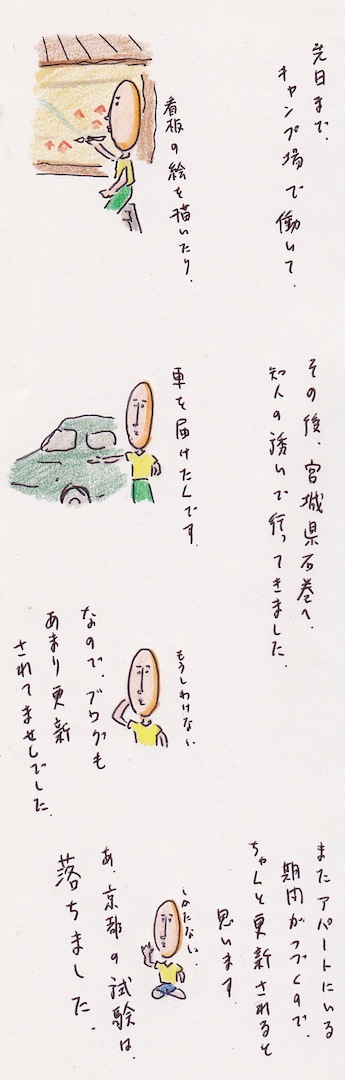 先日まで、
キャンプ場で働いて、
看板の絵を描いたり、
その後、宮城県石巻へ、
知人の誘いで行ってきました。
車を届けたんです。
もうしわけない
なので、ブログも
あまり更新
されてませんでした。
またアパートにいる
期間がつづくので、
ちゃんと更新されると
思います。
しかたない。
あ、京都の試験は、
落ちました。